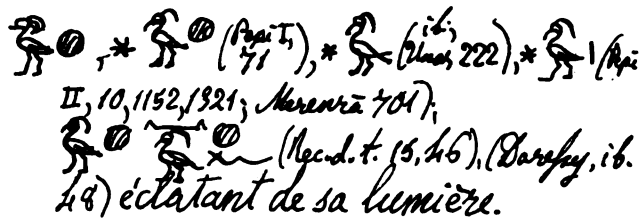 𓅜𓐍, * 𓅜𓐍 (Pepi I, 71), * 𓅜 (ib., Unas, 222), * 𓅜𓏤 (Pepi
II, 10, 1152, 1321; Marenrā 701);
𓅜𓐍 𓅜𓐍 (Rec. d. t. 15, 46), (Daressy, ib.
48) éclatant de sa lumière.